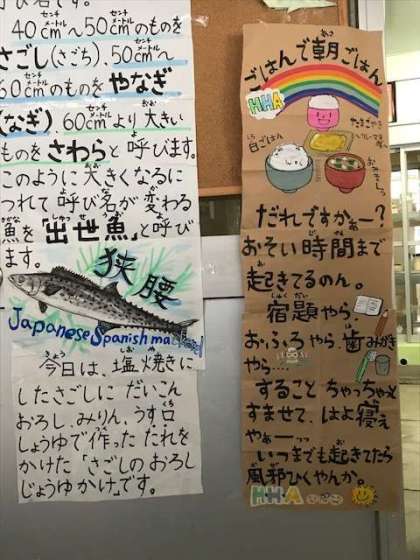 40cm～50cmのものを
さごし(さごち)、50cm～
60cmのものをやなぎ
(なぎ)、60cmより大きい
ものをさわらと呼びます。
このように大きくなるに
つれて呼び名が変わる
魚を「出世魚」と呼び
ます。
狭腰
Japanese Spanish ma
今日は、塩焼きに
したさごしに だいこん
おろし、みりん、うす口
しょうゆで作った たれを
かけた「さごしのおろし
じょうゆかけ」です。
ごはんで朝ごはん
HHA
白ごはん
おみそしる
だれですかぁー?
おそい時間まで
起きてるのん。
宿題やら、
おふろやら、歯みがき
やら……
すること ちゃっちゃと
すませて、はよ寝ぇ
やぁーーっ
いつまでも起きてたら
風邪ひくやんか。
HHA